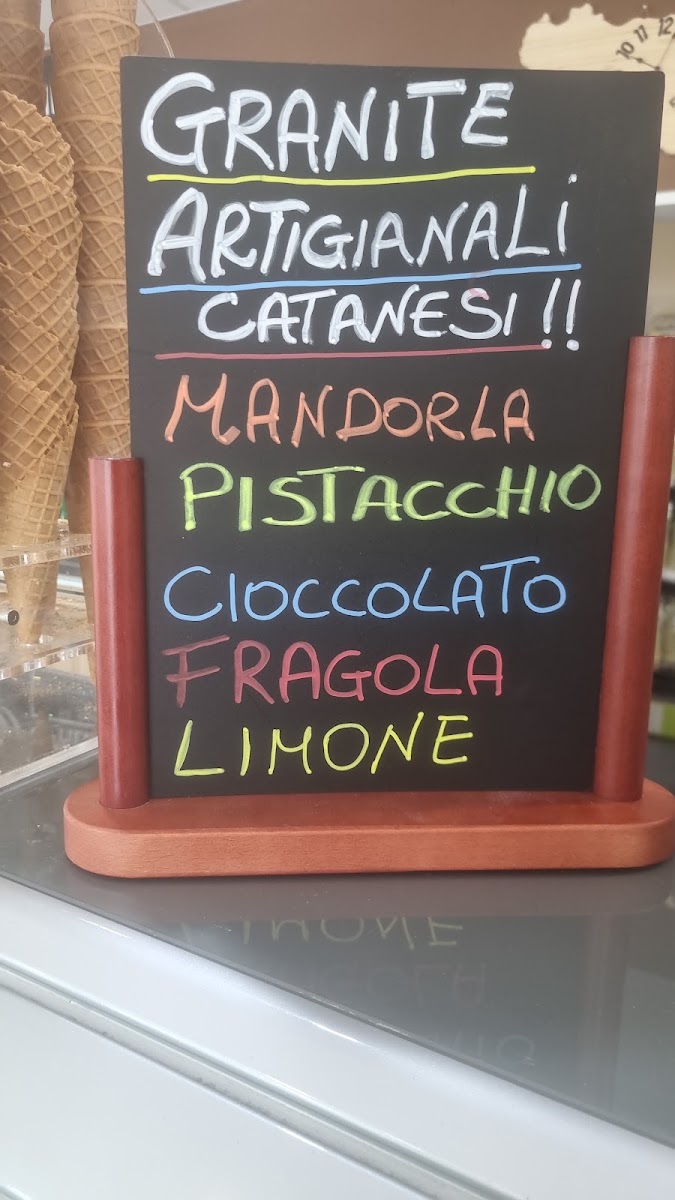 GRANITE
ARTIGIANALI
CATANESI!!
MANDORLA
PISTACCHIO
CIOCCOLATO
FRAGOLA
LIMONE
10 11 12